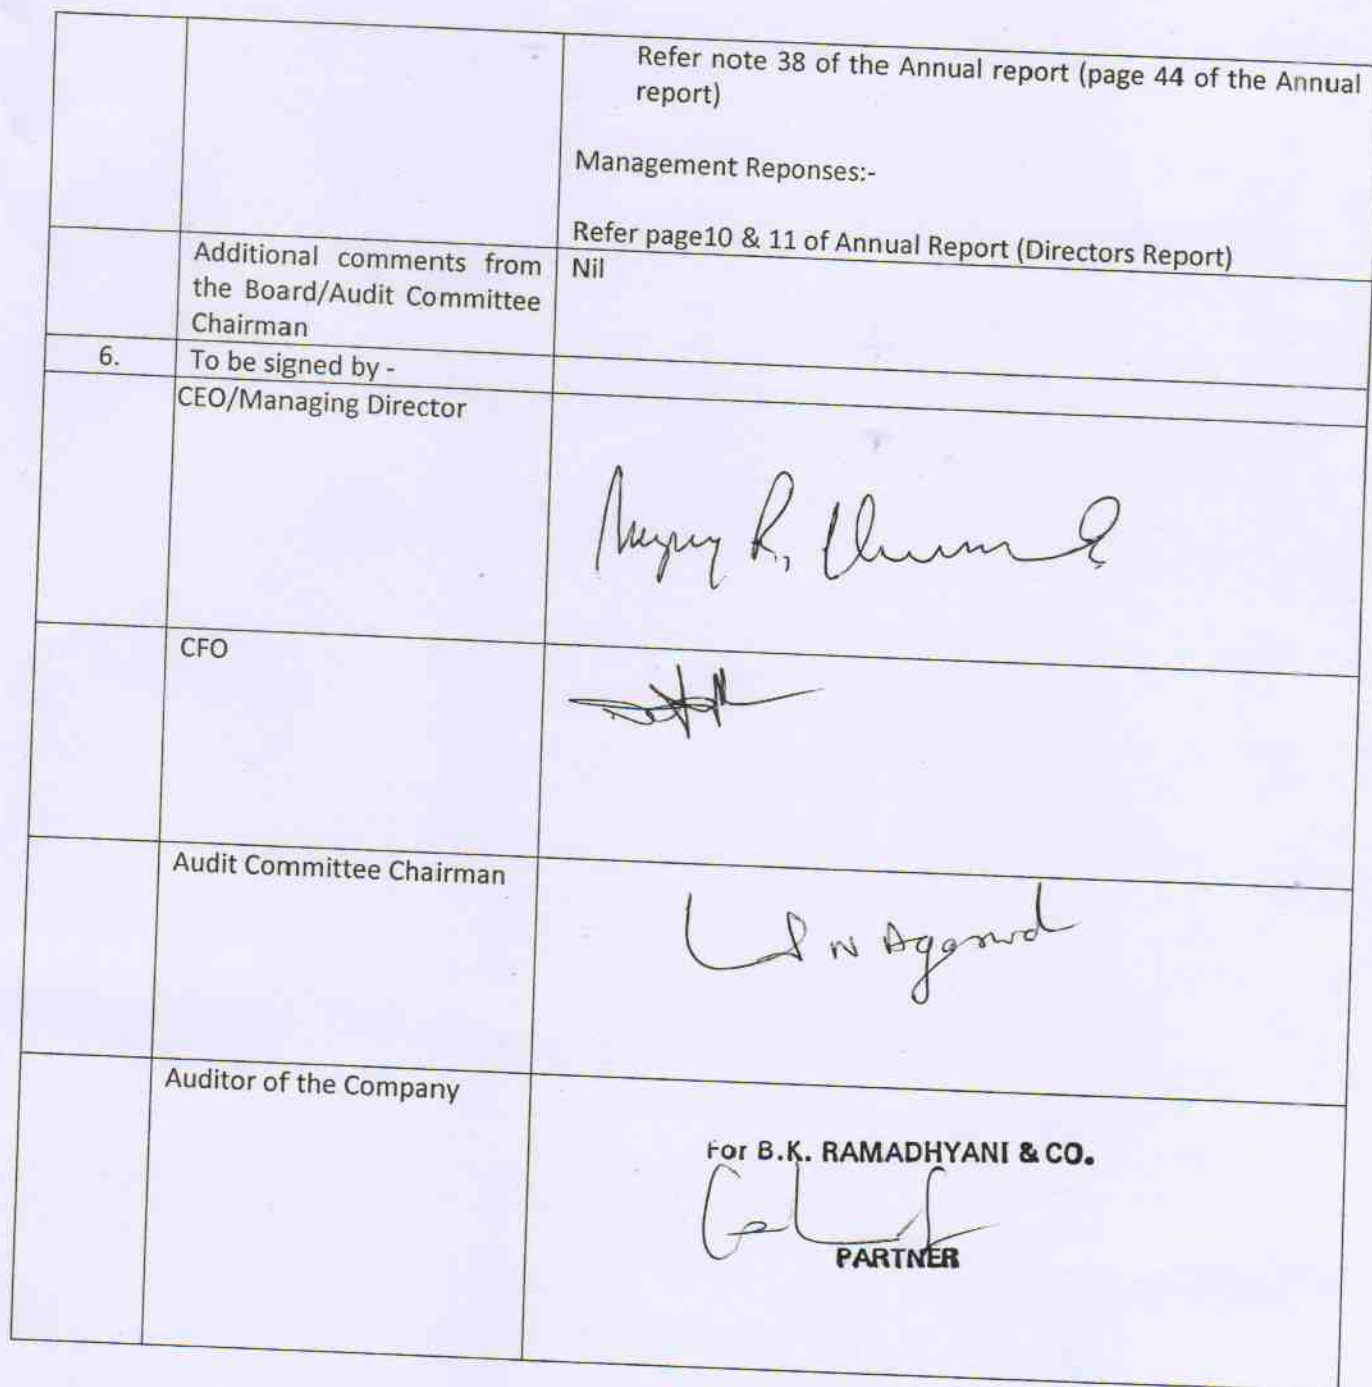 Refer note 38 of the Annual report (page 44 of the Annual
report)
Management Reponses:-
Refer page10 & 11 of Annual Report (Directors Report)
Additional comments from
the Board/Audit Committee
Chairman
Nil
6.
To be signed by -
CEO/Managing Director
R.
CFO
Audit Committee Chairman
N Agarwal
Auditor of the Company
For B.K. RAMADHYANI & CO.
PARTNER